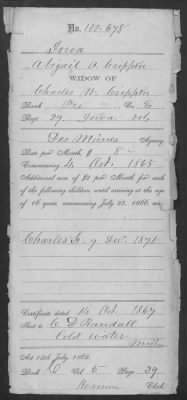 No. 102-678
Iowa
Abigail A. Crippen
WIDOW OF
Charles W. Crippen
Rank Pri Co. G
Regt 29 Iowa Vols
Des Moines Agency
Rate per Month, $ 8
Commencing 4 Oct. 1864
Additional sum of $2 per Month for each
of the following children, until arriving at the age
of 16 years, commencing July 25, 1866, viz:
Charles 9 Dec. 1871
Certificate dated 14 Oct 1867
Sent to C D Randall
Cold water
Mich
Act 14th July, 1862.
Book C Vol. 5 Page 39
Clerk.